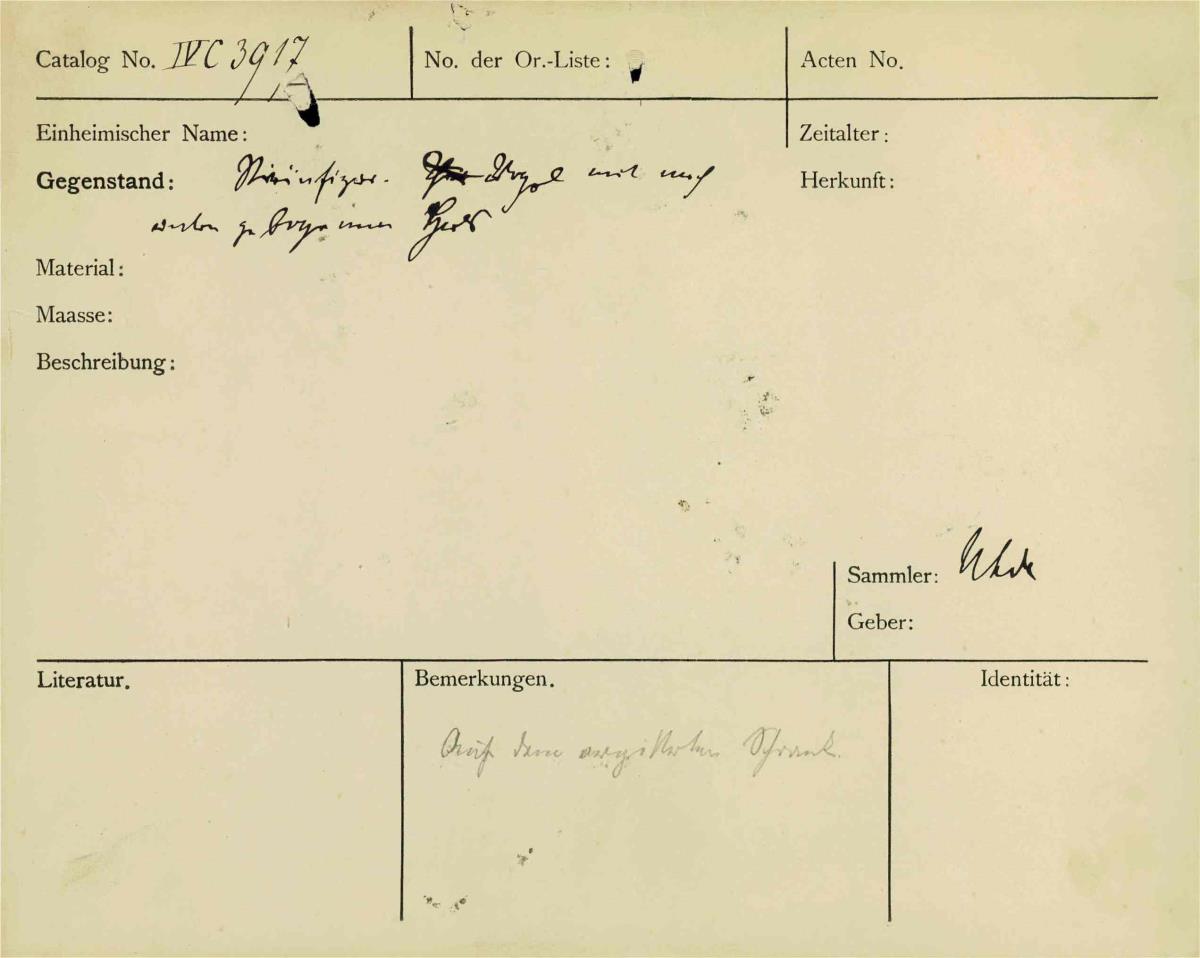 Catalog No. IV C 3917
No. der Or.-Liste:
Acten No.
Einheimischer Name:
Zeitalter:
Gegenstand: Steinfigur. Vogel mit nach
Herkunft:
unten gebogenem Hals
Material:
Maasse:
Beschreibung:
Sammler: Uhde
Geber:
Literatur.
Bemerkungen.
Identität:
Auf dem vergitterten Schrank.